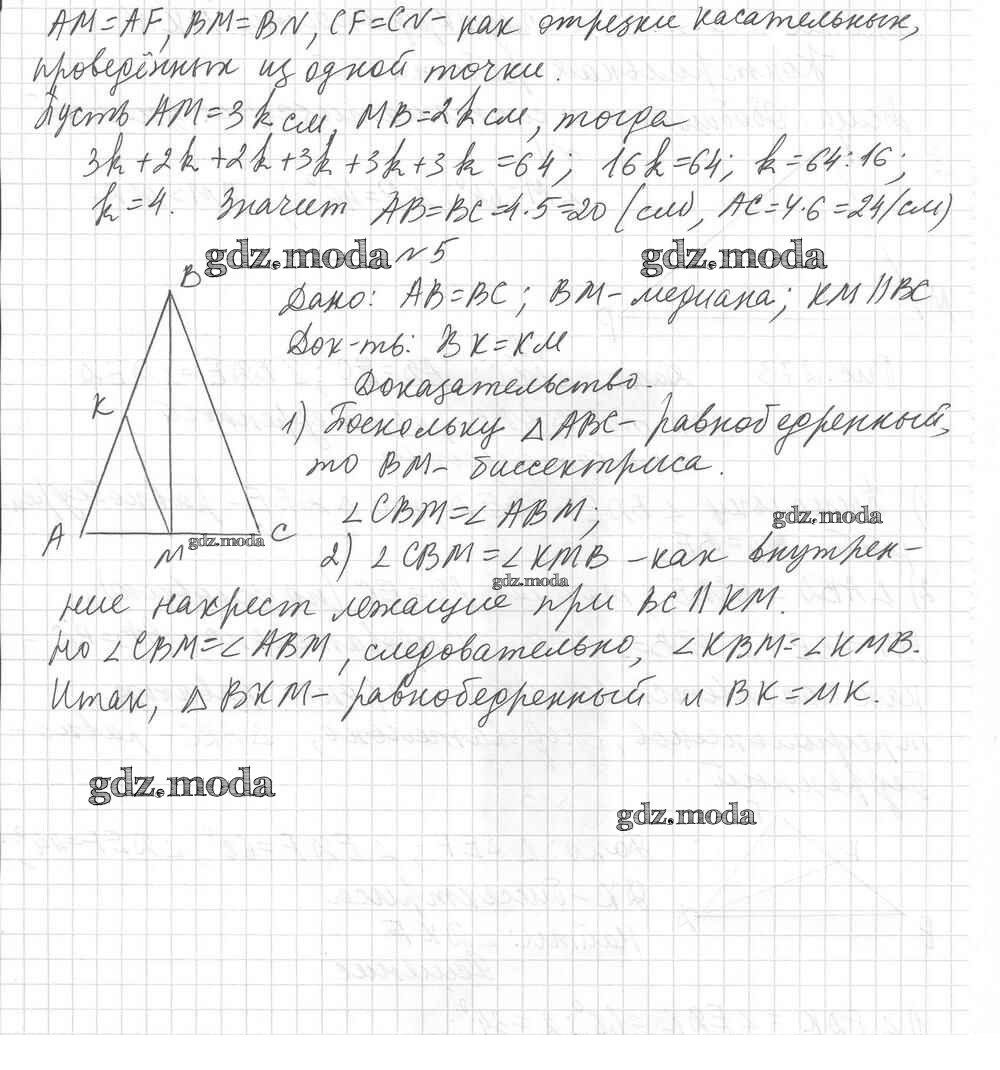 AM=AF, BM=BN, CF=CN- как отрезки касательных,
проведённых из одной точки.
Пусть AM=3k см, MB=2k см, тогда
3k+2k+2k+3k+3k+3k=64; 16k=64; k=64:16;
k=4. Значит AB=BC=4·5=20 (см), AC=4·6=24(см)
gdz.moda №5 gdz.moda
B
Дано: AB=BC; BM- медиана; KM||BC
Док-ть: BK=KM
Доказательство.
K
1) Поскольку △ABC- равнобедренный,
то BM- биссектриса.
∠CBM=∠ABM; gdz.moda
A M gdz.moda C
2) ∠CBM=∠KMB -как внутрен-
gdz.moda
ние накрест лежащие при BC||KM.
Но ∠CBM=∠ABM, следовательно, ∠KBM=∠KMB.
Итак, △BKM- равнобедренный и BK=MK.
gdz.moda
gdz.moda